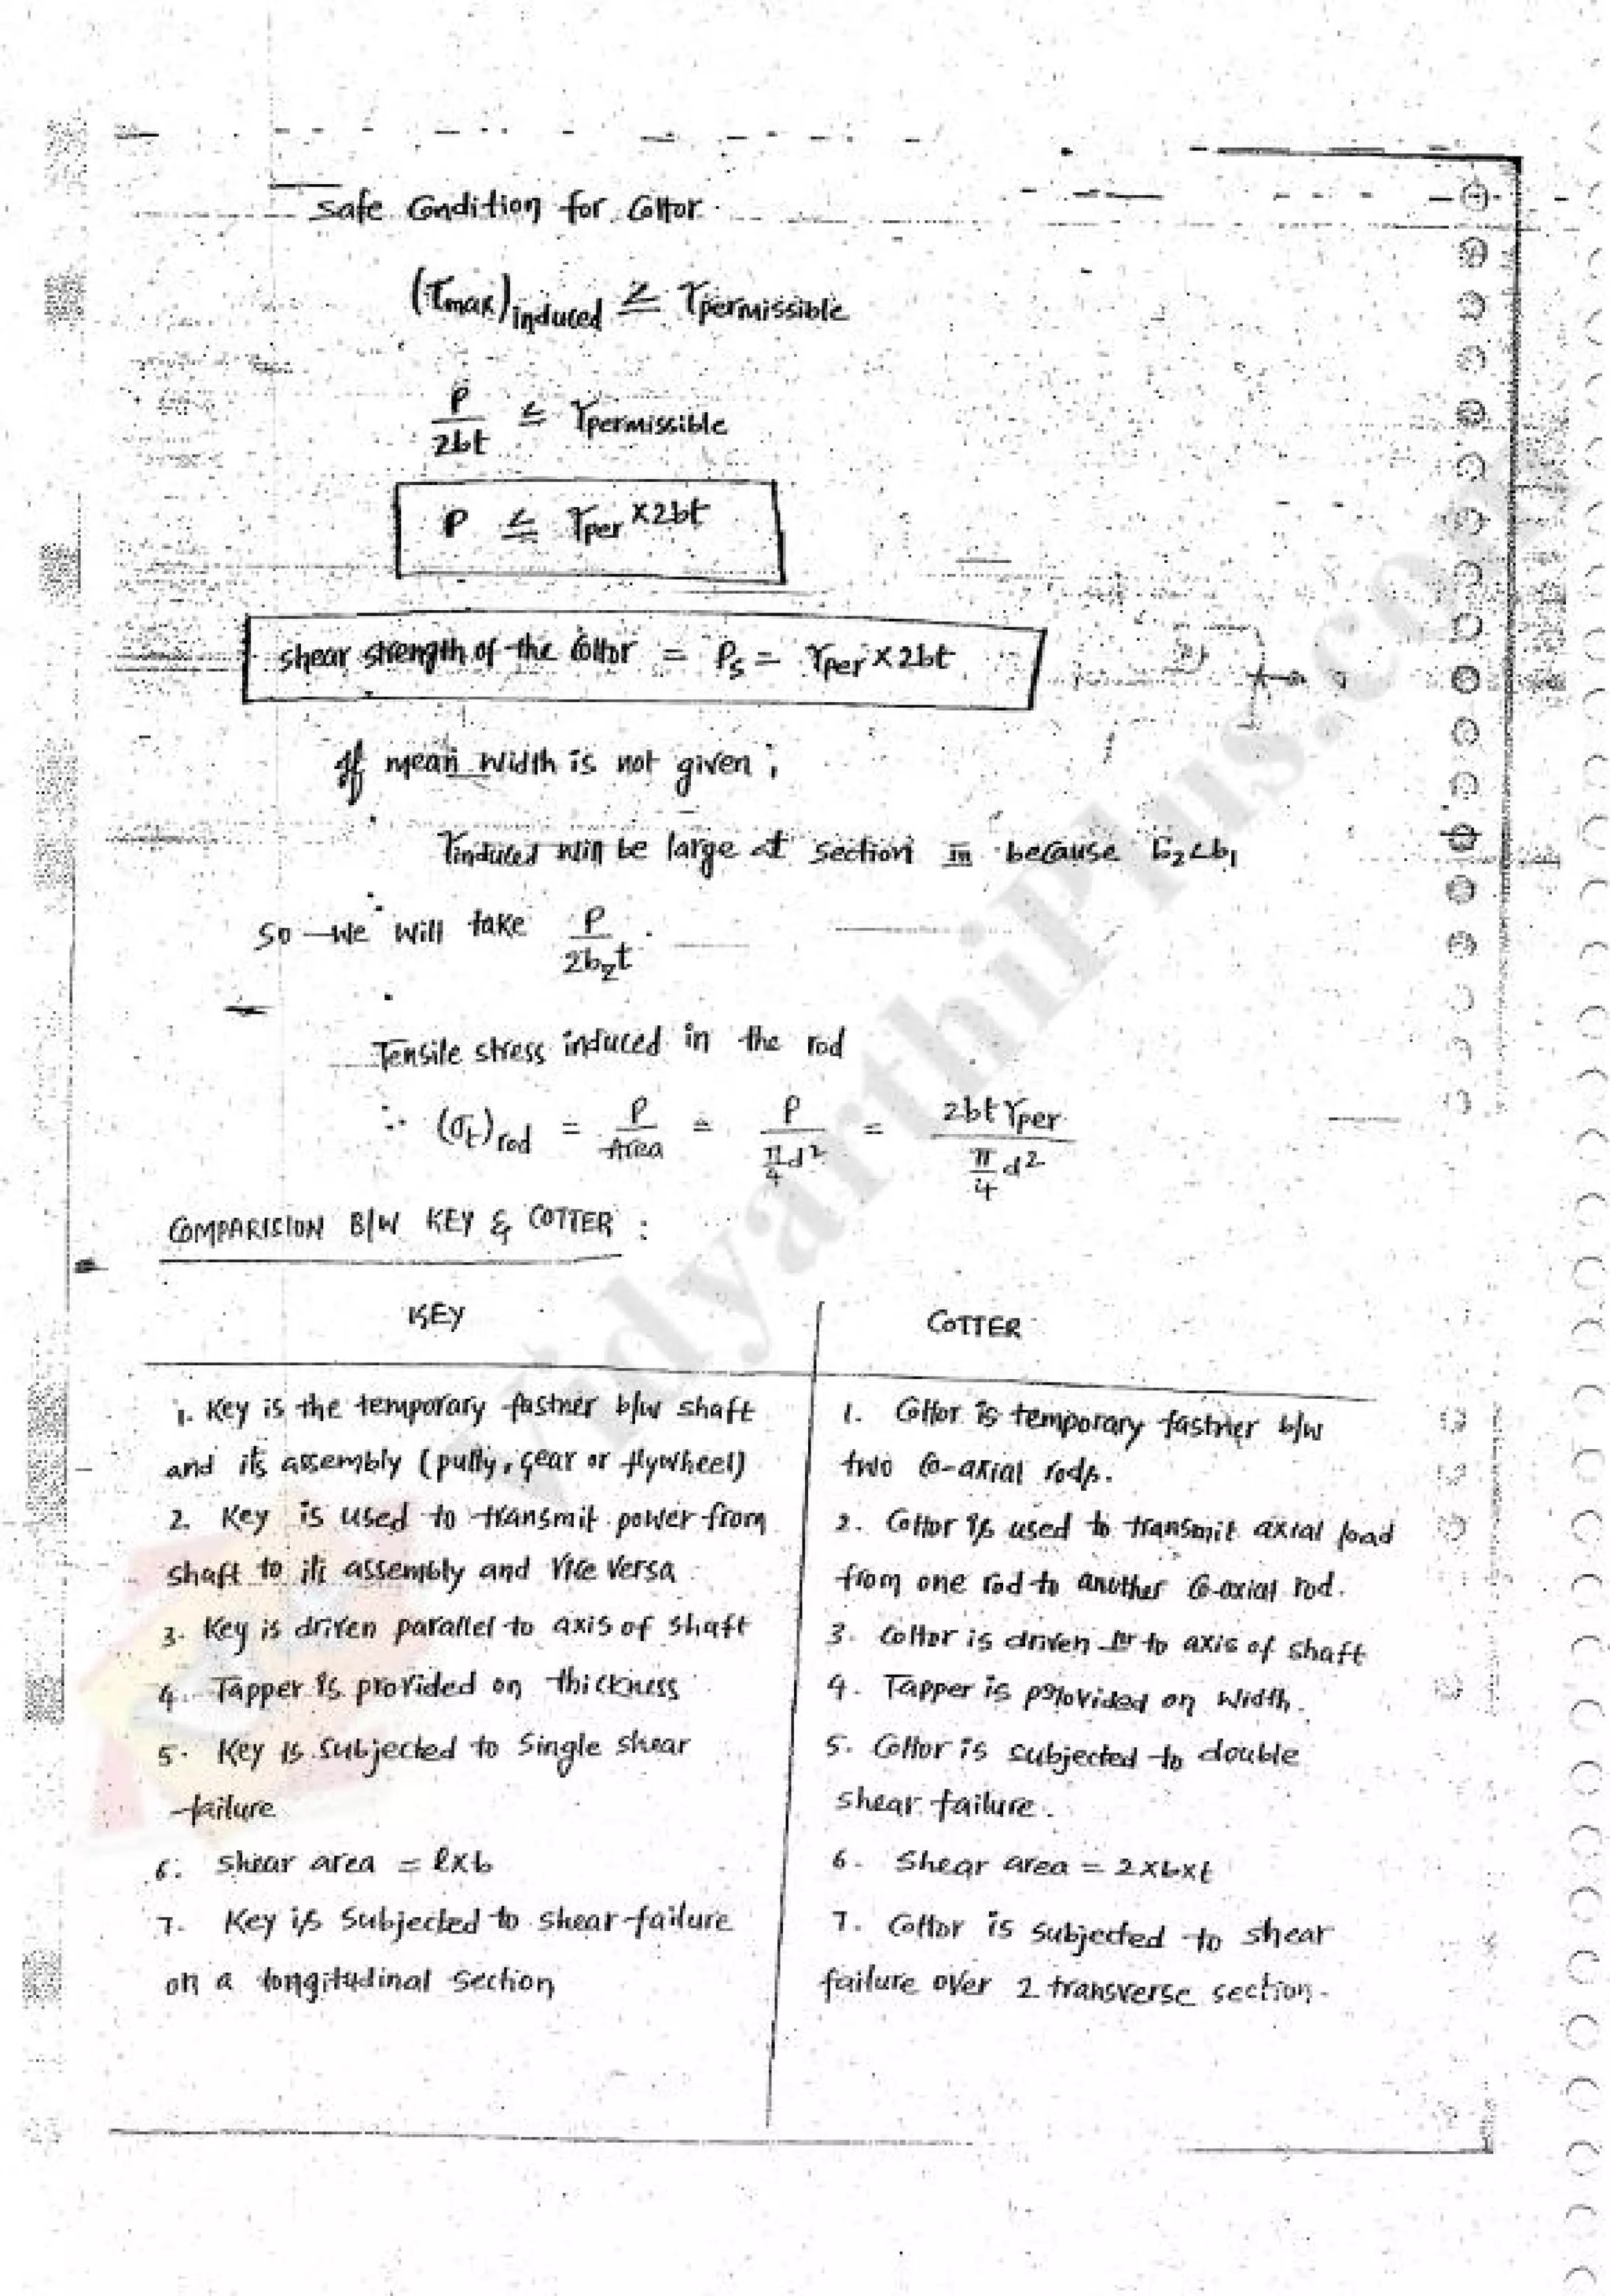 Safe Condition for Cottor
(τmax)induced ≤ τpermissible
P/2bt ≤ τpermissible
P ≤ τper x2bt
shear strength of the Cottor = Ps = τper x 2bt
If mean width is not given;
τinduced will be large at section III because b2<b1
So we will take P/2b2t.
Tensile stress induced in the rod
∴ (σt)rod = P/Area = P/(π/4 d²) = 2bt τper/(π/4 d²)
COMPARISION B/W KEY & COTTER :
KEY
1. Key is the temporary fastner b/w shaft
and its assembly (pully, gear or flywheel)
2. Key is used to transmit power from
shaft to its assembly and Vice Versa
3. Key is driven parallel to axis of shaft
4. Tapper is provided on thickness
5. Key is Subjected to Single shear
failure
6. shear area = l×b
7. Key is Subjected to shear failure
on a longitudinal section
COTTER
1. Cottor is temporary fastner b/w
two Co-axial rods.
2. Cottor is used to transmit axial load
from one rod to another Co-axial rod.
3. Cottor is driven ⊥r to axis of shaft
4. Tapper is provided on width.
5. Cottor is subjected to double
shear failure.
6. Shear area = 2×b×t
7. Cottor is subjected to shear
failure over 2 transverse section.
VidyarthiPlus.com